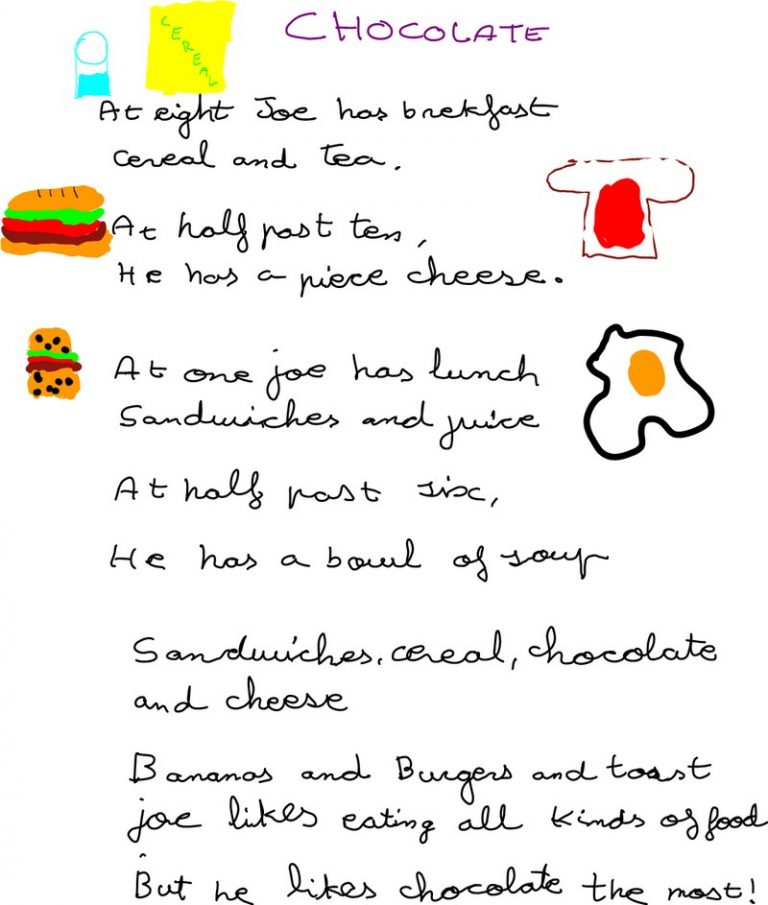 CHOCOLATE
CEREAL
At eight Joe has brekfast
cereal and tea.
At half past ten,
He has a piece cheese.
At one joe has lunch
Sandwiches and juice
At half past six,
He has a bowl of soup
Sandwiches, cereal, chocolate
and cheese
Bananas and Burgers and toast
joe likes eating all kinds of food
But he likes chocolate the most!